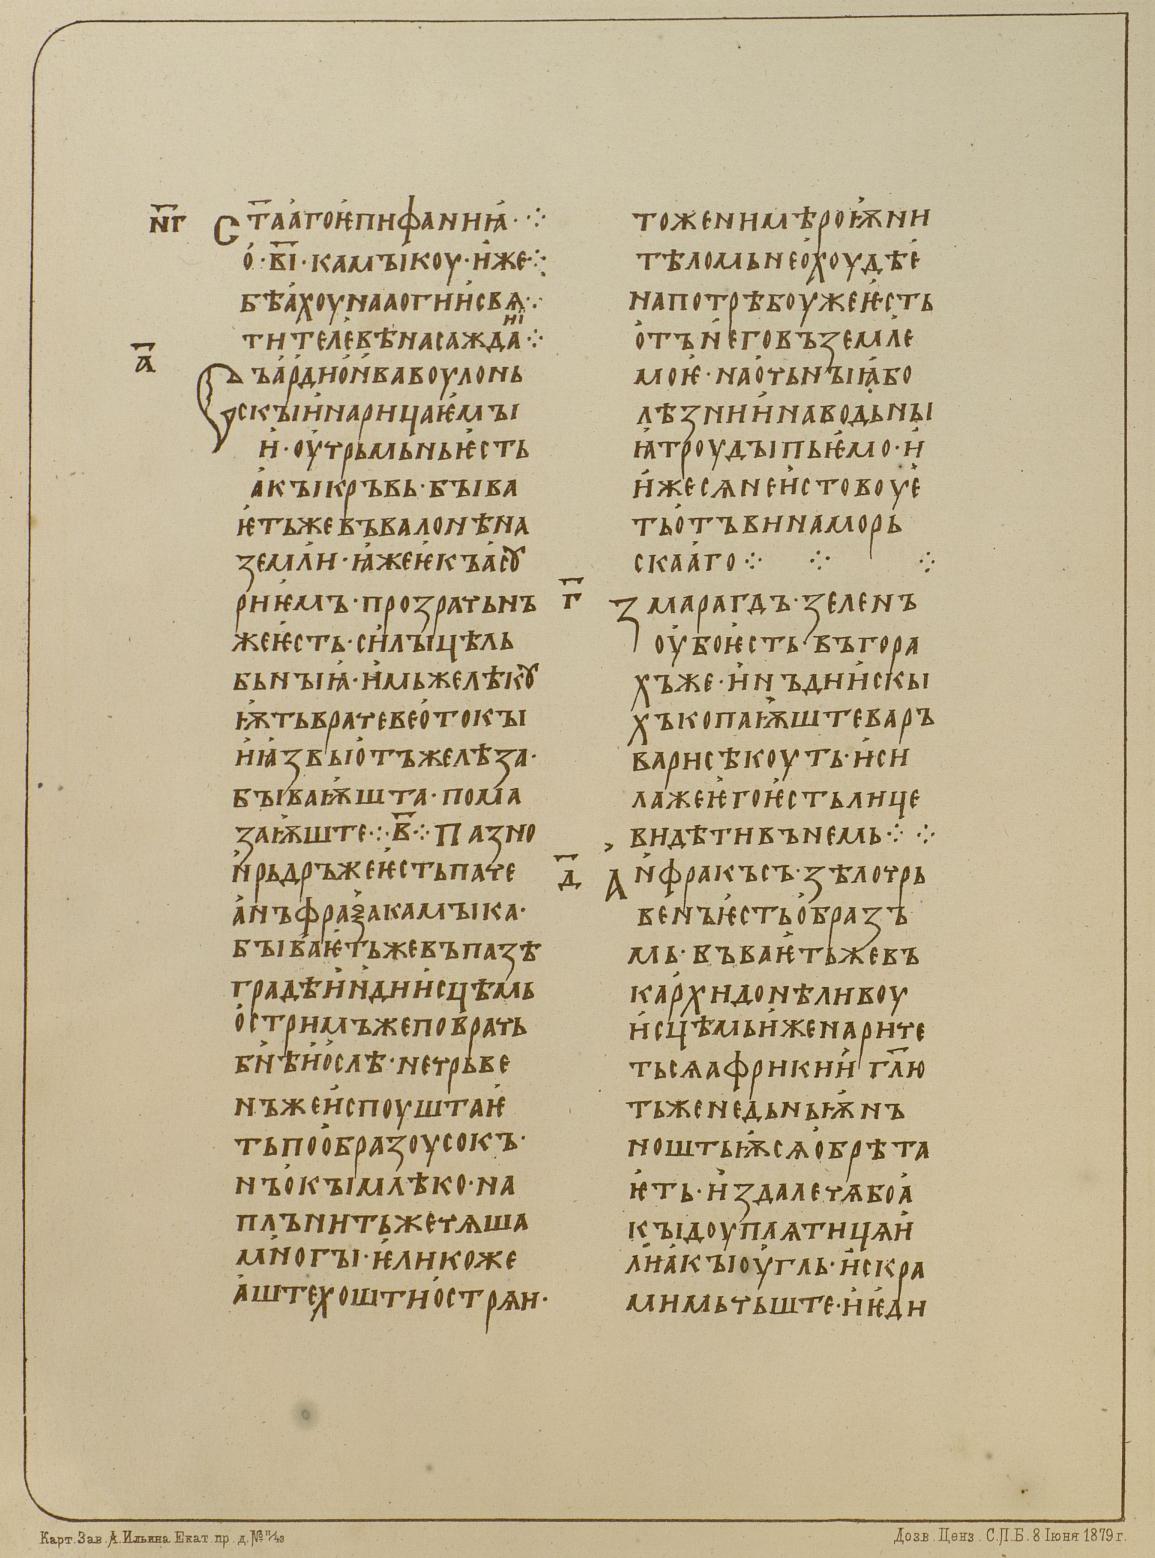 н҃г
Ст҃аа́гоѥ҆пифаниꙗ҆· ⁘
о҆·в҃і·камъікоу·и҆же⁘
бѣа́хоунааогни́исвѧ⁘
тителе́вѣнасаждани́і⁘
а҃
Съа́рдио́и҆вавоулонь
скъіи҆нарицаѥ҆мъі
и҆·оу҆трьмьньѥсть
а҆къікръвь·бъіва
ѥ҆тьжевъвалонѣна
земли҆·ꙗ҆жеѥ҆къа́сꙋ
риѥ҆мъ·прозрачьнъ
жеѥ҆сть·си́лъіцѣль
бьнъіꙗ҆·и҆мьжелѣкꙋ
ѭ҆тьврачевео́токъі
и҆ꙗ҆звъіо́тъжелѣза·
бъіваѭ҆шта·пома
заѭ҆ште⁘в҃⁘Пазио
и҆рьдръжеѥ҆стьпаче
а҆нъфраѯакамъіка·
бъіваѥ҆тьжевъпазѣ
градѣи҆и҆ндии҆сцѣмь
о҆стримъжеповрачь
би҆ѣи҆о́слѣ·нечрьве
нъжеи҆споуштаѥ҆
тьпоо́бразоусокъ·
нъо́къімлѣко·на
плънитьжечѧша
мн́огъі·ѥ҆ликоже
а҆штехоштиѡ҆стрѧи·
тоженимѣроѭ҆ни
тѣломьнео́хоудѣѥ
напотрѣбоужеѥ҆сть
о҆тън҆еговъземле
моѥ҆·нао́чьнъіꙗ҆бо
лѣзнии҆наводьнъі
ꙗ҆троудъіпьѥ҆мо·и҆
и҆жесѧнеи҆стовоуѥ
тьо́тъвинаморь
скаа́го⁘ ⁘ ⁘
г҃
Змарагдъ·зеленъ
оу҆боѥ҆сть·въгора
хъже·и҆и҆нъдии҆скъі
хъкопаѭ҆штеваръ
варисѣкоуть·и҆си
лажеѥ҆гоѥ҆стьлице
видѣтивънемь⁘ ⁘
д҃
Ан́фракъсъ·зѣлочрь
венъѥ҆стьо́бразъ
мь·въваѥ҆тьжевъ
карх́идонѣливоу
и҆сцѣмьи҆женарите
тьсѧафрикии҆гл҃ю
тьженедьньѭ҆нъ
ноштьѭ҆сѧо́брѣта
ѥ҆ть·и҆здалечѧбоа́
къідоуплѧтицѧи҆
ли҆а́къіоу҆гль·и҆скра
мимьчьште·и҆ѥ҆ди
Карт. Зав. А. Ильина Екат. пр. д. №
Дозв. Ценз. С.П.Б. 8 Іюня 1879 г.